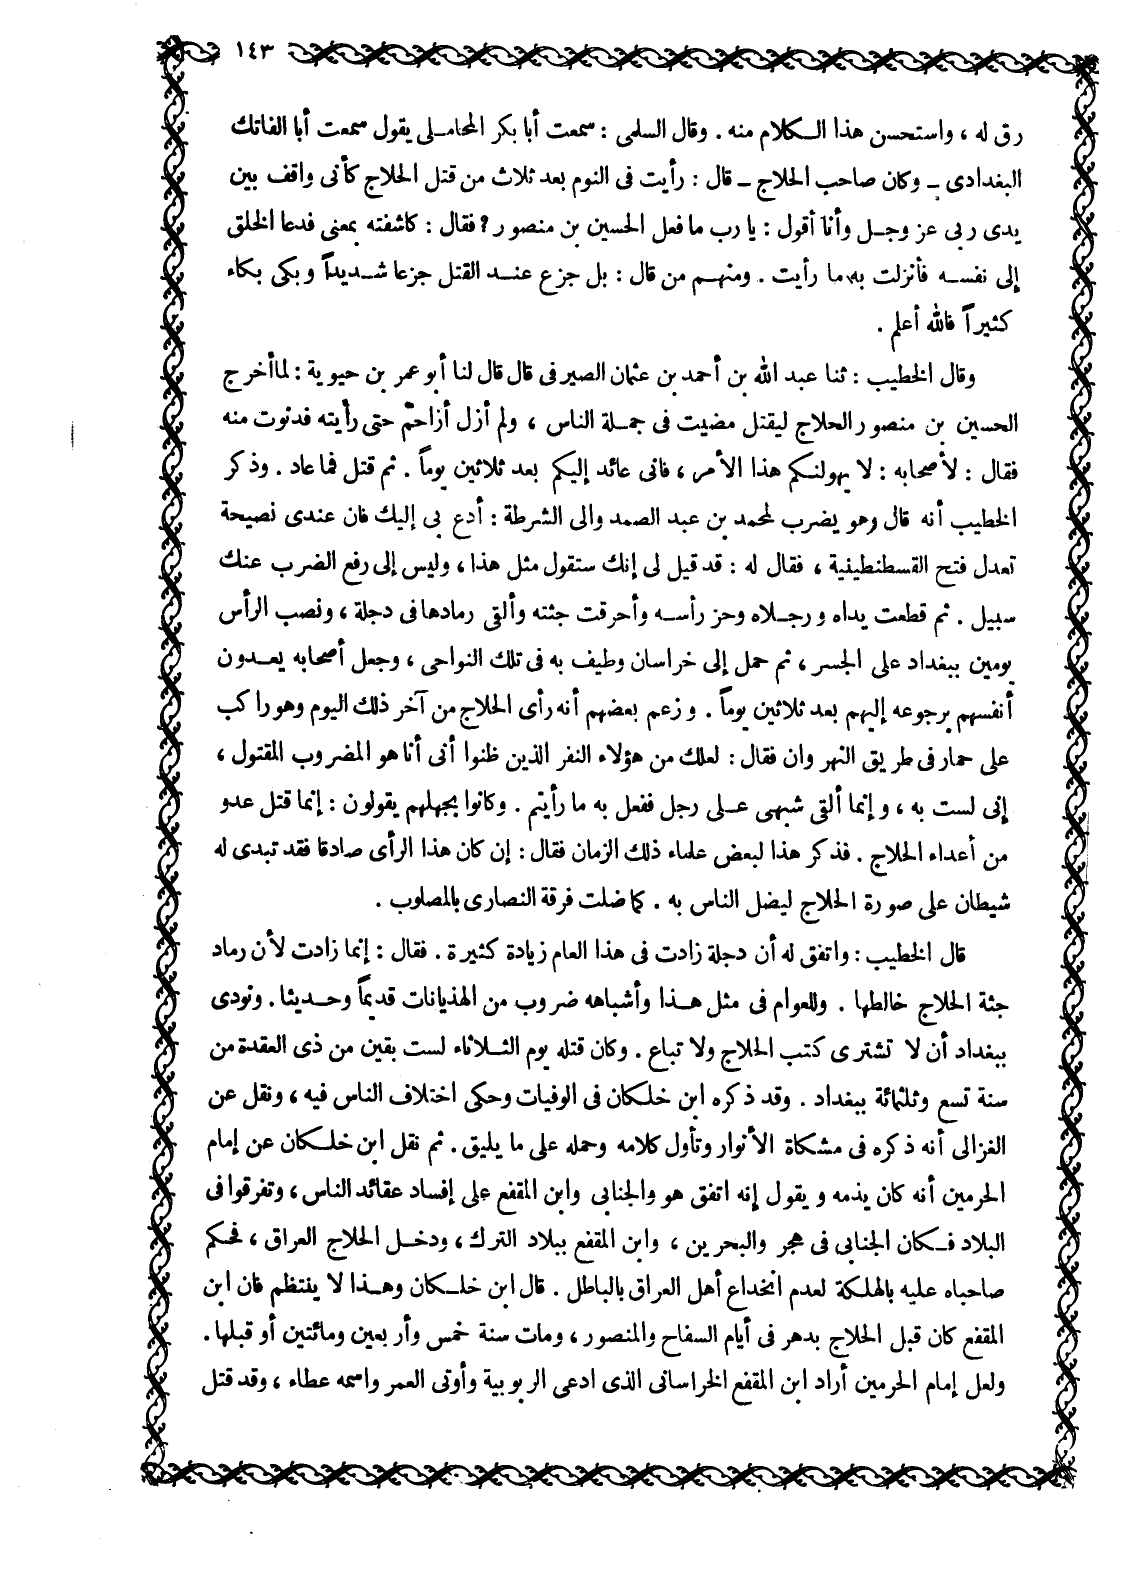 ١٤٣
رق له ، واستحسن هذا الكلام منه . وقال السلمى : سمعت أبا بكر المحاملى يقول سمعت أبا الفاتك
البغدادى ـ وكان صاحب الحلاج ـ قال : رأيت فى النوم بعد ثلاث من قتل الحلاج كأنى واقف بين
يدى ربى عز وجل وأنا أقول : يا رب ما فعل الحسين بن منصور ؟ فقال : كاشفته بمعنى فدعا الخلق
إلى نفسه فأنزلت به ما رأيت . ومنهم من قال : بل جزع عند القتل جزعا شديداً وبكى بكاء
كثيراً فالله أعلم .
وقال الخطيب : ثنا عبد الله بن أحمد بن عثمان الصيرفى قال قال لنا أبو عمر بن حيوية : لما أخرج
الحسين بن منصور الحلاج ليقتل مضيت فى جملة الناس ، ولم أزل أزاحم حتى رأيته فدنوت منه
فقال : لأصحابه : لا يهولنكم هذا الأمر ، فانى عائد إليكم بعد ثلاثين يوماً . ثم قتل فما عاد . وذكر
الخطيب أنه قال وهو يضرب لمحمد بن عبد الصمد والى الشرطة : أدع بى إليك فان عندى نصيحة
تعدل فتح القسطنطينية ، فقال له : قد قيل لى إنك ستقول مثل هذا ، وليس إلى رفع الضرب عنك
سبيل . ثم قطعت يداه ورجلاه وحز رأسه وأحرقت جثته وألقى رمادها فى دجلة ، ونصب الرأس
يومين ببغداد على الجسر ، ثم حمل إلى خراسان وطيف به فى تلك النواحى ، وجعل أصحابه يعدون
أنفسهم برجوعه إليهم بعد ثلاثين يوماً . وزعم بعضهم أنه رأى الحلاج من آخر ذلك اليوم وهو راكب
على حمار فى طريق النهروان فقال : لعلك من هؤلاء النفر الذين ظنوا أنى أنا هو المضروب المقتول ،
إنى لست به ، وإنما ألقى شبهى على رجل ففعل به ما رأيتم . وكانوا بجهلهم يقولون : إنما قتل عدو
من أعداء الحلاج . فذكر هذا لبعض علماء ذلك الزمان فقال : إن كان هذا الرأى صادقا فقد تبدى له
شيطان على صورة الحلاج ليضل الناس به . كما ضلت فرقة النصارى بالمصلوب .
قال الخطيب : واتفق له أن دجلة زادت فى هذا العام زيادة كثيرة . فقال : إنما زادت لأن رماد
جثة الحلاج خالطها . وللعوام فى مثل هذا وأشباهه ضروب من الهذيانات قديماً وحديثا . ونودى
ببغداد أن لا تشترى كتب الحلاج ولا تباع . وكان قتله يوم الثلاثاء لست بقين من ذى العقدة من
سنة تسع وثلثمائة ببغداد . وقد ذكره ابن خلكان فى الوفيات وحكى اختلاف الناس فيه ، ونقل عن
الغزالى أنه ذكره فى مشكاة الأنوار وتأول كلامه وحمله على ما يليق . ثم نقل ابن خلكان عن إمام
الحرمين أنه كان يذمه ويقول إنه اتفق هو والجنابى وابن المقفع على إفساد عقائد الناس ، وتفرقوا فى
البلاد فكان الجنابى فى هجر والبحرين ، وابن المقفع ببلاد الترك ، ودخل الحلاج العراق ، فحكم
صاحباه عليه بالهلكة لعدم انخداع أهل العراق بالباطل . قال ابن خلكان وهذا لا ينتظم فان ابن
المقفع كان قبل الحلاج بدهر فى أيام السفاح والمنصور ، ومات سنة خمس وأربعين ومائتين أو قبلها .
ولعل إمام الحرمين أراد ابن المقفع الخراسانى الذى ادعى الربوبية وأوتى العمر واسمه عطاء ، وقد قتل